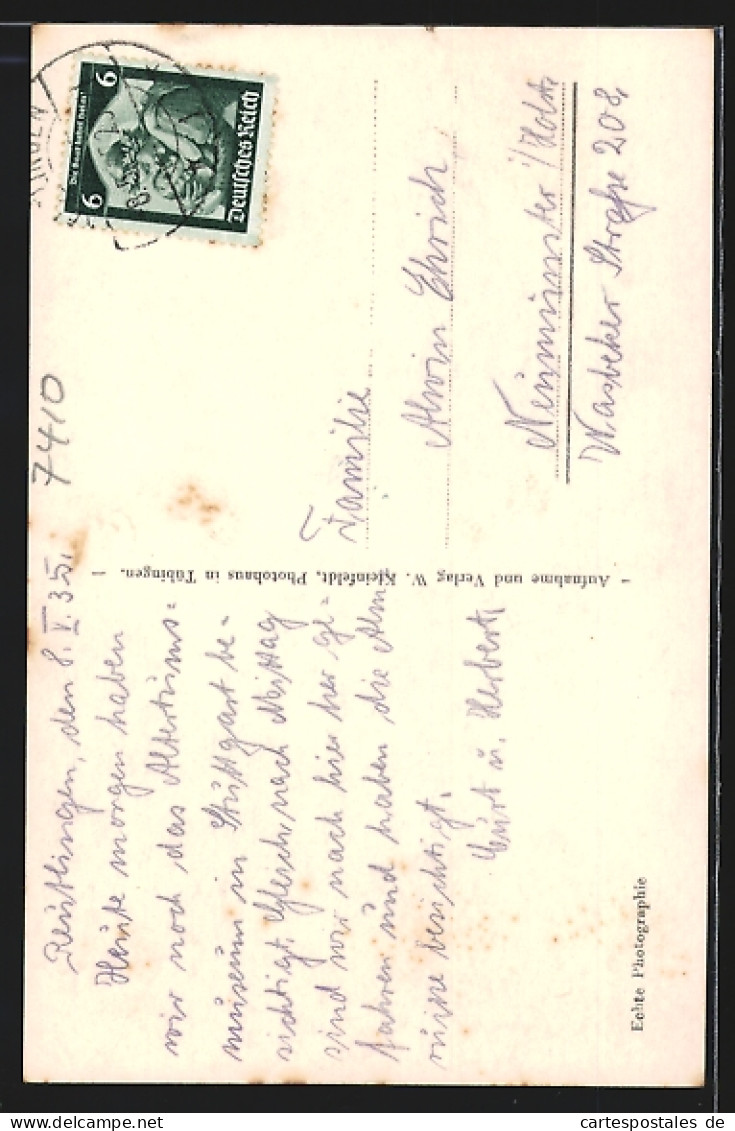 Reutlingen, den 8. V. 35.
Heute morgen haben
wir noch das Altertums-
museum in Stuttgart be-
sichtigt. Gleich nach Mittag
sind wir nach hier her ge-
fahren und haben die Alm
ruine besichtigt.
Curt u. Herbert
7410
Die Saar kehrt heim!
6
6
Deutsches Reich
8.5.
Familie
Alwin Ehrich
Neumünster i/Holst.
Wasbeker Straße 208,
– Aufnahme und Verlag W. Kleinfeldt, Photohaus in Tübingen. –
Echte Photographie
cartespostales de